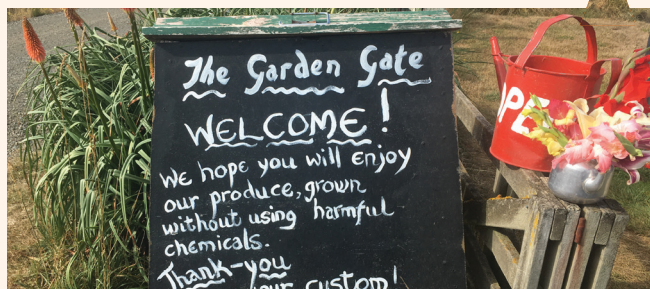 The Garden Gate
WELCOME!
We hope you will enjoy
our produce, grown
without using harmful
chemicals.
Thank-you
our custom!
OPE